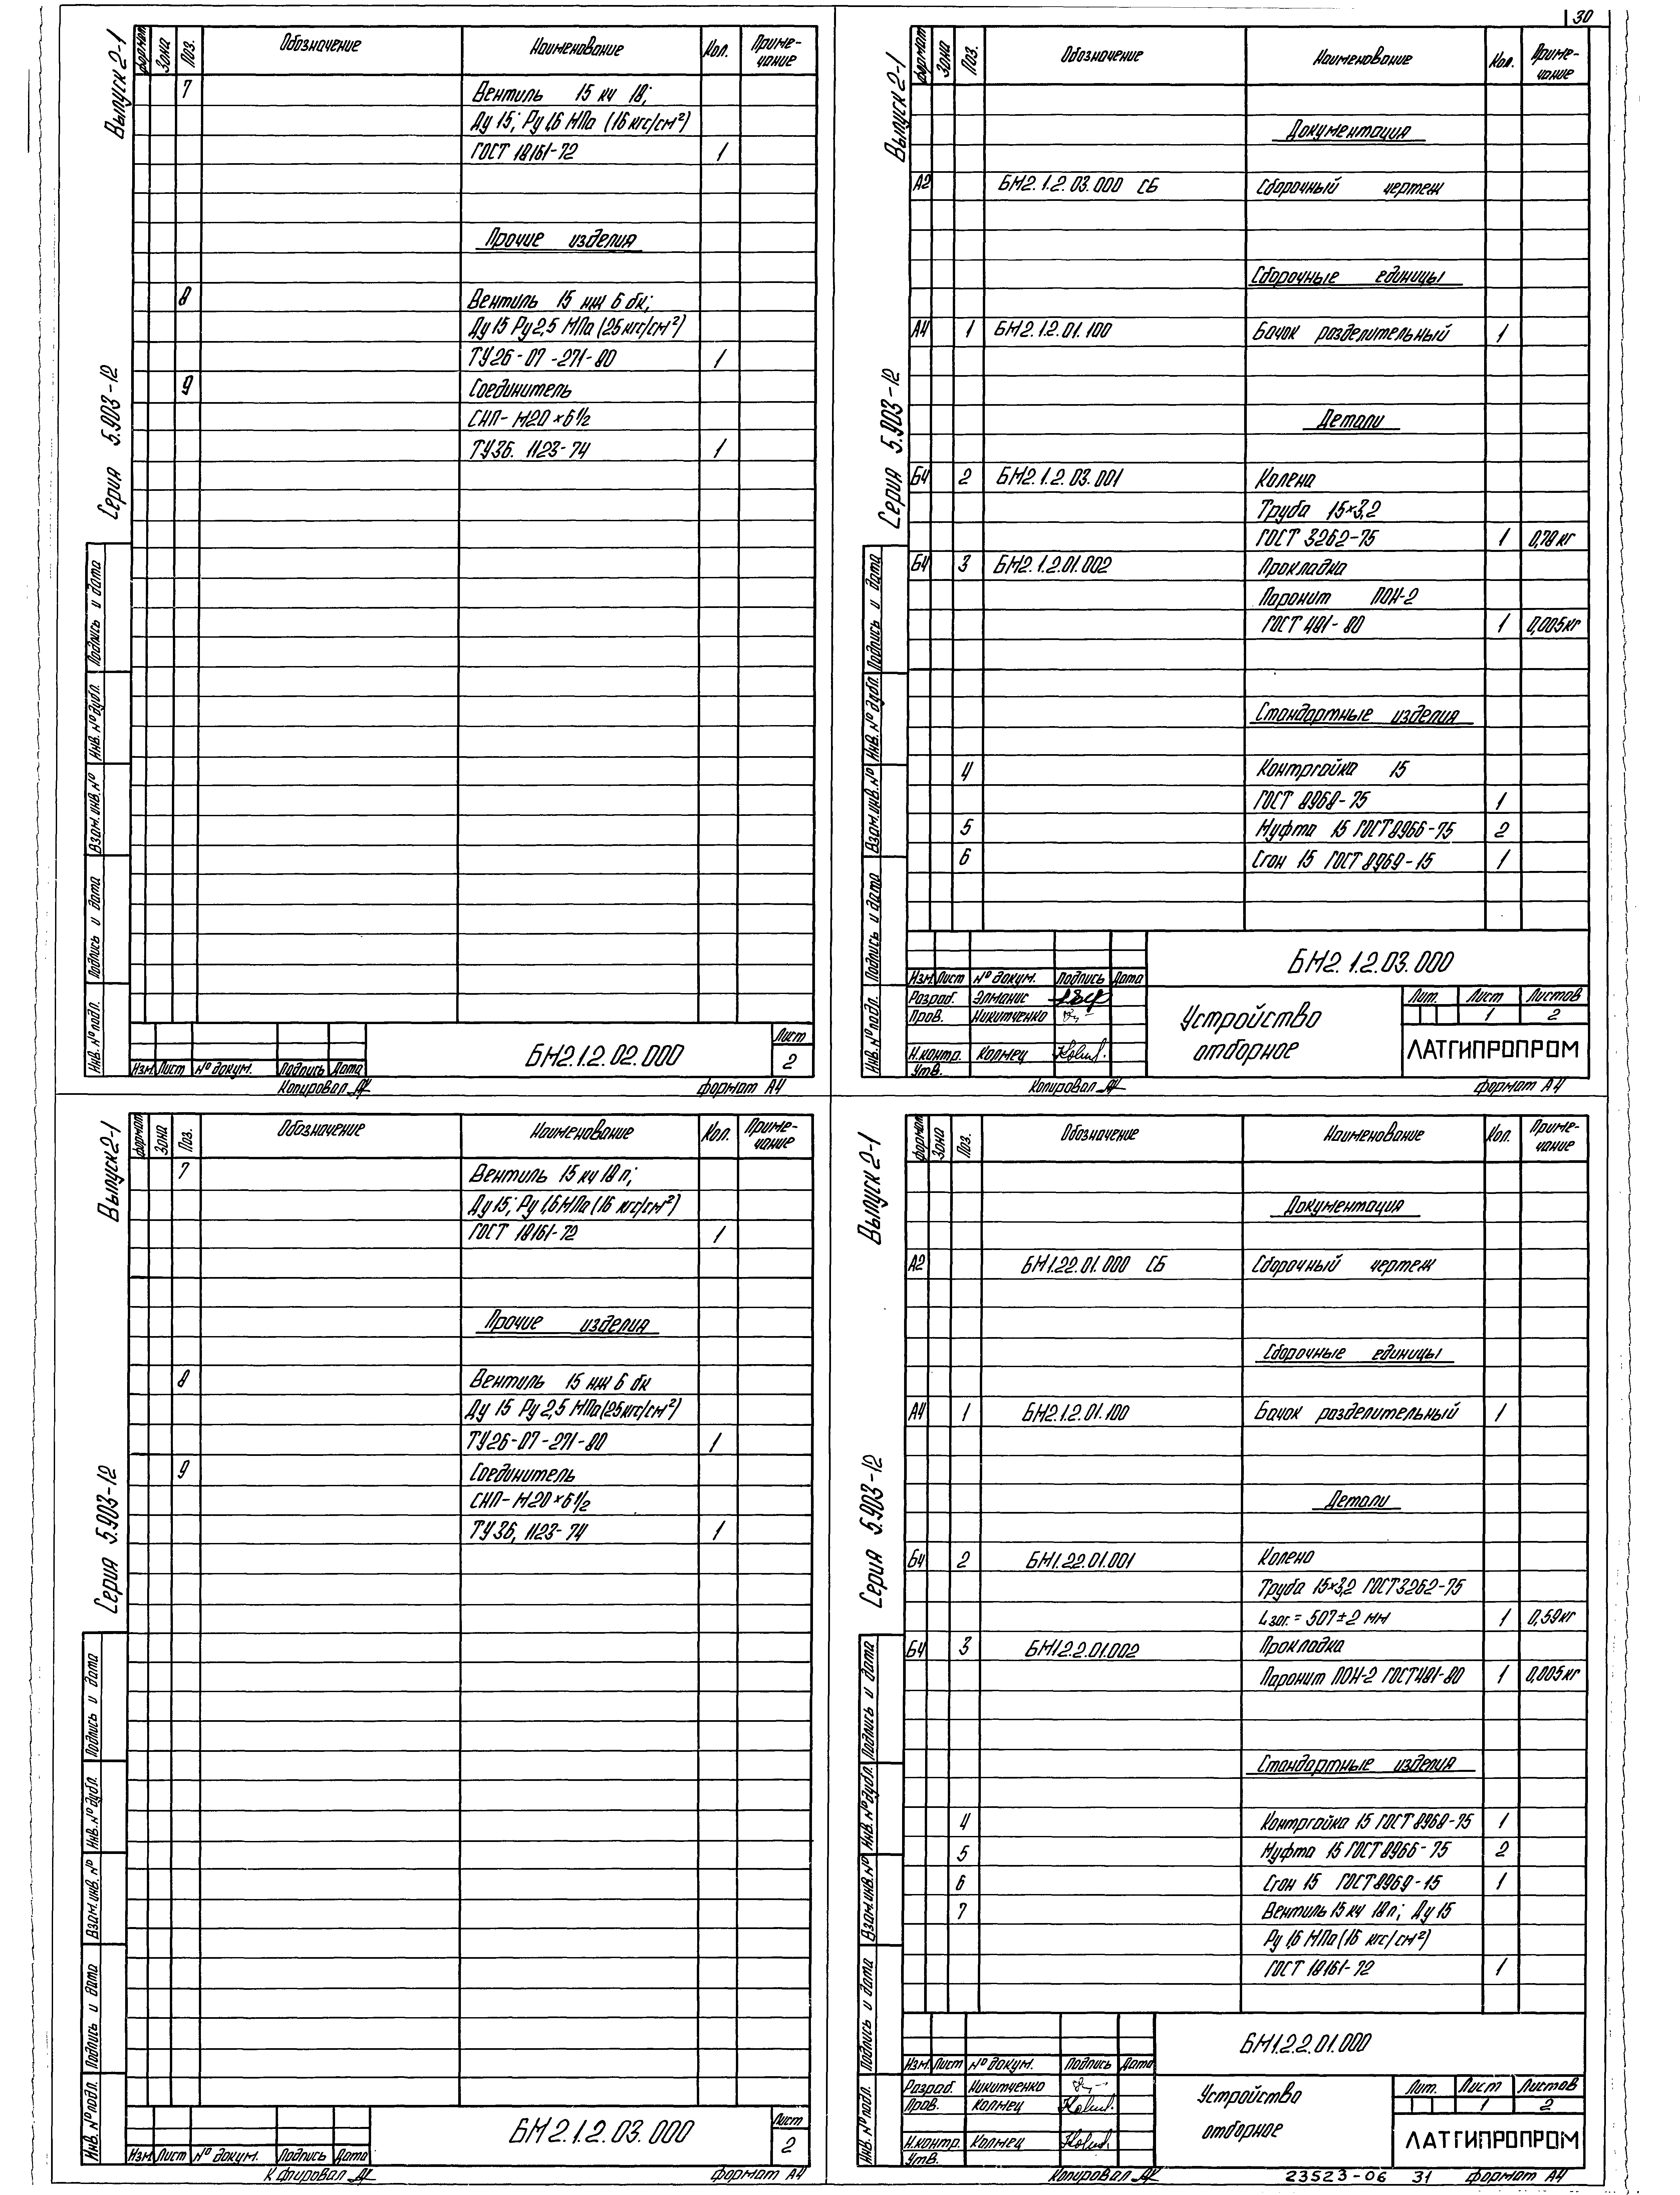 30
Выпуск 2-1
Серия 5.903-12
формат Зона Поз. Обозначение Наименование Кол. Приме-
чание
7 Вентиль 15 кч 18;
Ду 15; Ру 1,6 МПа (16 кгс/см²)
ГОСТ 18161-72 1
Прочие изделия
8 Вентиль 15 нж 6 бк;
Ду 15 Ру 2,5 МПа (25 кгс/см²)
ТУ26-07-271-80 1
9 Соединитель
СНП-М20×6½
ТУ36. 1123-74 1
Подпись и дата
Инв. № дубл.
Взам. инв. №
Подпись и дата
Инв. № подл.
Изм. Лист № докум. Подпись Дата
БМ2.1.2.02.000
Лист
2
Копировал
формат А4
Выпуск 2-1
Серия 5.903-12
формат Зона Поз. Обозначение Наименование Кол. Приме-
чание
Документация
А2 БМ2.1.2.03.000 СБ Сборочный чертеж
Сборочные единицы
А4 1 БМ2.1.2.01.100 Бачок разделительный 1
Детали
Б4 2 БМ2.1.2.03.001 Колено
Труба 15×3,2
ГОСТ 3262-75 1 0,78 кг
Б4 3 БМ2.1.2.01.002 Прокладка
Паронит ПОН-2
ГОСТ 481-80 1 0,005кг
Стандартные изделия
4 Контргайка 15
ГОСТ 8968-75 1
5 Муфта 15 ГОСТ 8966-75 2
6 Сгон 15 ГОСТ 8969-15 1
Подпись и дата
Инв. № дубл.
Взам. инв. №
Подпись и дата
Инв. № подл.
БМ2.1.2.03.000
Изм. Лист № докум. Подпись Дата
Разраб. Элманис
Пров. Никитченко
Н.контр. Колмец
Утв.
Устройство
отборное
Лит. Лист Листов
1 2
ЛАТГИПРОПРОМ
Копировал
формат А4
Выпуск 2-1
Серия 5.903-12
формат Зона Поз. Обозначение Наименование Кол. Приме-
чание
7 Вентиль 15 кч 18 п;
Ду 15; Ру 1,6 МПа (16 кгс/см²)
ГОСТ 18161-72 1
Прочие изделия
8 Вентиль 15 нж 6 бк
Ду 15 Ру 2,5 МПа (25кгс/см²)
ТУ26-07-271-80 1
9 Соединитель
СНП-М20×6½
ТУ36, 1123-74 1
Подпись и дата
Инв. № дубл.
Взам. инв. №
Подпись и дата
Инв. № подл.
Изм. Лист № докум. Подпись Дата
БМ2.1.2.03.000
Лист
2
К пировал
формат А4
Выпуск 2-1
Серия 5.903-12
формат Зона Поз. Обозначение Наименование Кол. Приме-
чание
Документация
А2 БМ1.22.01.000 СБ Сборочный чертеж
Сборочные единицы
А4 1 БМ2.1.2.01.100 Бачок разделительный 1
Детали
Б4 2 БМ1.22.01.001 Колено
Труба 15×3,2 ГОСТ 3262-75
Lзаг. = 507±2 мм 1 0,59кг
Б4 3 БМ1.2.2.01.002 Прокладка
Паронит ПОН-2 ГОСТ 481-80 1 0,005кг
Стандартные изделия
4 Контргайка 15 ГОСТ 8968-75 1
5 Муфта 15 ГОСТ 8966-75 2
6 Сгон 15 ГОСТ 8969-15 1
7 Вентиль 15 кч 18 п; Ду 15
Ру 1,6 МПа (16 кгс/см²)
ГОСТ 18161-72 1
Подпись и дата
Инв. № дубл.
Взам. инв. №
Подпись и дата
Инв. № подл.
БМ1.2.2.01.000
Изм. Лист № докум. Подпись Дата
Разраб. Никитченко
Пров. Колмец
Н.контр. Колмец
Утв.
Устройство
отборное
Лит. Лист Листов
1 2
ЛАТГИПРОПРОМ
Копировал
23523-06 31 формат А4